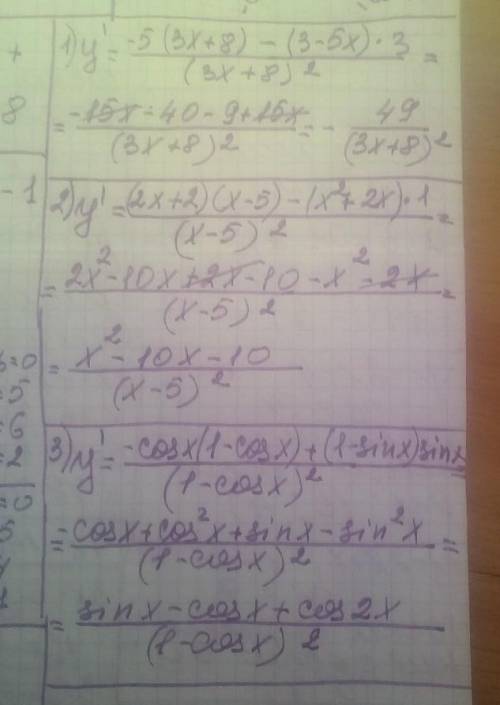 +
8
-1
=0
=5
=6
=2
=0
5
1) y' = -5(3x+8) - (3-5x)·3 / (3x+8)² =
= -15x - 40 - 9 + 15x / (3x+8)² = - 49 / (3x+8)²
2) y' = (2x+2)(x-5) - (x²+2x)·1 / (x-5)² =
= 2x² - 10x + 2x - 10 - x² - 2x / (x-5)² =
= x² - 10x - 10 / (x-5)²
3) y' = -cosx(1-cosx) + (1-sinx)sinx / (1-cosx)² =
= -cosx + cos²x + sinx - sin²x / (1-cosx)² =
= sinx - cosx + cos2x / (1-cosx)²